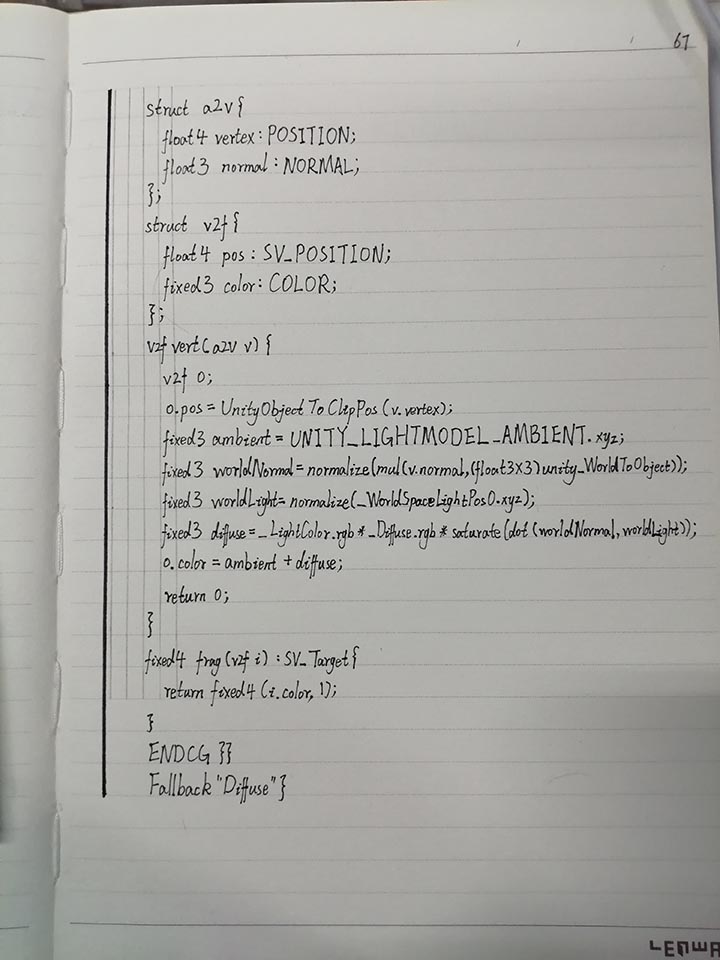 67
struct a2v{
float4 vertex: POSITION;
float3 normal: NORMAL;
};
struct v2f{
float4 pos: SV_POSITION;
fixed3 color: COLOR;
};
v2f vert(a2v v) {
v2f o;
o.pos = UnityObjectToClipPos(v.vertex);
fixed3 ambient = UNITY_LIGHTMODEL_AMBIENT.xyz;
fixed3 worldNormal = normalize(mul(v.normal,(float3X3)unity_WorldToObject));
fixed3 worldLight = normalize(_WorldSpaceLightPos0.xyz);
fixed3 diffuse = _LightColor.rgb * _Diffuse.rgb * saturate(dot(worldNormal, worldLight));
o.color = ambient + diffuse;
return o;
}
fixed4 frag(v2f i) : SV_Target{
return fixed4(i.color, 1);
}
ENDCG }}
Fallback "Diffuse" }